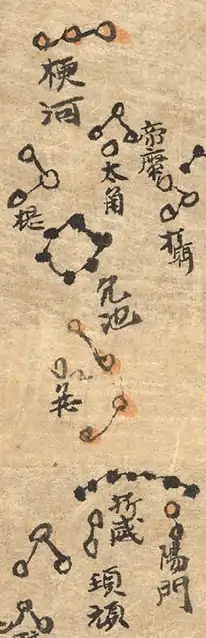 梗河
帝席
太角
攝
提
亢池
折威
陽門
頓頑